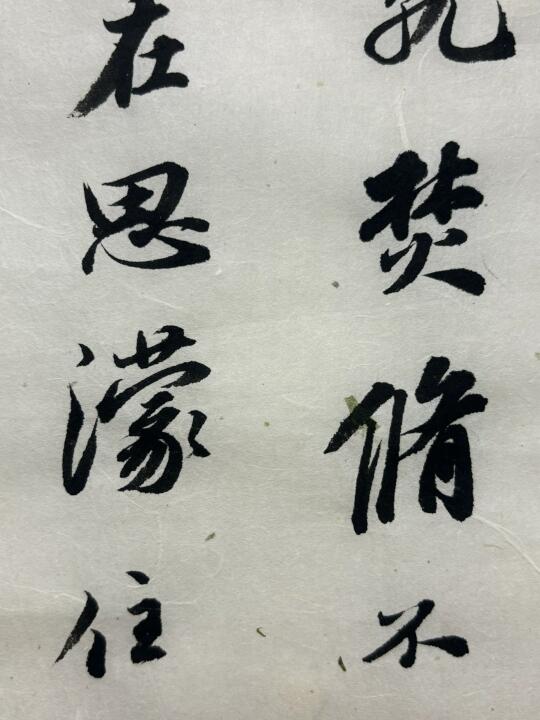 焚脩不
在思濛住